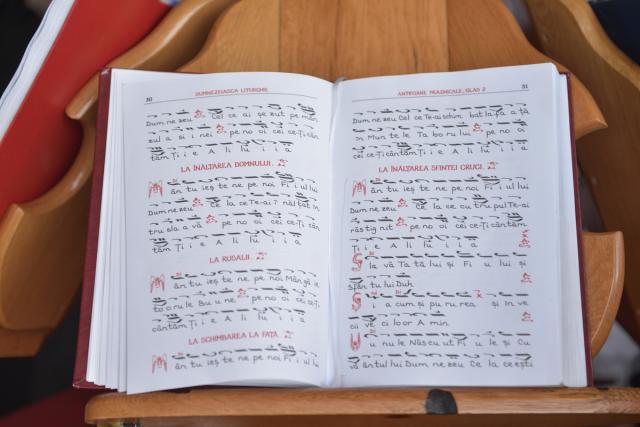 30
DUMNEZEIASCA LITURGHIE
Dum ne zeu Cel ce ai șe zut pe mân
zul a si nei pe no oi cei ce-Ți cân
tăm Ți i e A li lu i i a
LA ÎNĂLȚAREA DOMNULUI.
M ân tu ieș te ne pe noi Fi i ul lui
Dum ne zeu Ce la ce Te-ai î năl țat în
tru sla a vă pe no oi cei ce-Ți cân
tăm Ți i e A li lu i i a
LA RUSALII.
M ân tu ieș te ne pe noi Mân gâ ie
to o ru le Bu u ne pe no oi cei ce-Ți
cântăm Ți i e A li lu i i a
LA SCHIMBAREA LA FAȚĂ.
M ân tu ieș te ne pe noi Fi i ul lui
ANTIFOANE PRAZNICALE, GLAS 2
31
Dum ne zeu Cel ce Te-ai schim bat la fa a ță
în Mun te le Ta bo ru lui pe no oi
cei ce-Ți cântăm Ți i e A li lu i i a
LA ÎNĂLȚAREA SFINTEI CRUCI.
M ân tu ieș te ne pe noi Fi i ul lui
Dum ne zeu Ce la ce cu tru pul Te-ai
răs tig nit pe no oi cei ce-Ți cântăm
Ți i e A li lu i i a
S la vă Ta tă lui și Fi u lui și
Sfân tu lui Duh
S i a cum și pu ru rea și în ve
cii ve ci lo or A min
U u nu le Năs cu ut Fi u le și Cu
vâ ântul lui Dum ne zeu Ce la ce ești